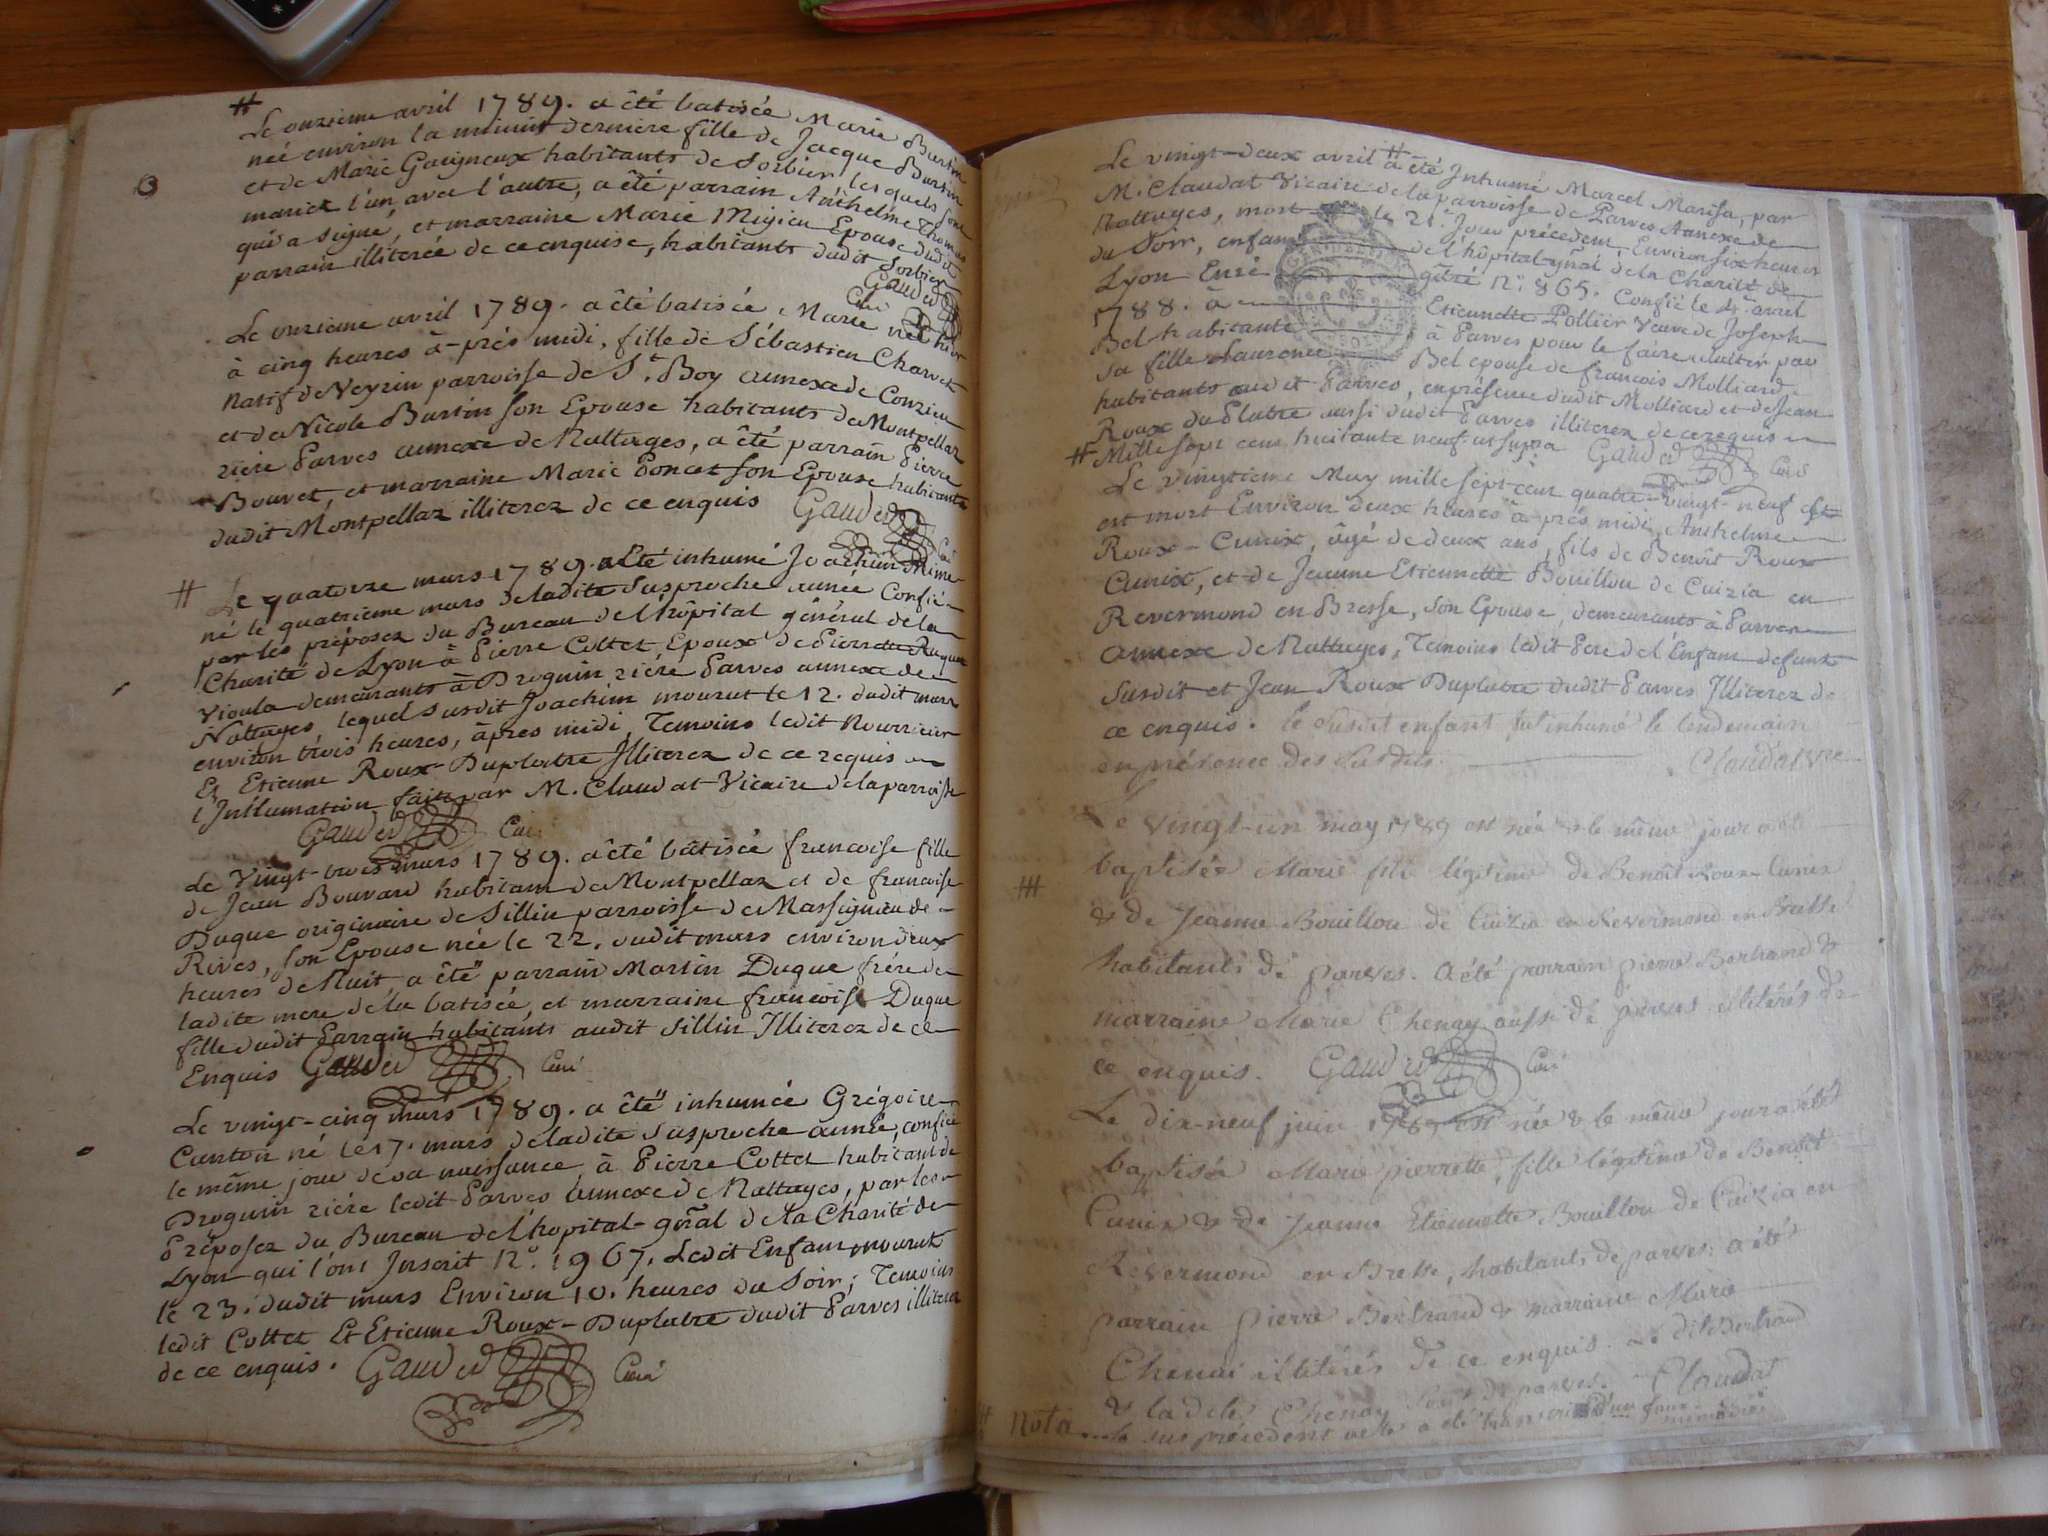 Le onzieme avril 1789. a êté batisée Marie Burtin
neé environ la minuit derniere fille de Jacque Burtin
et de Marie Gaigneux habitants de Sorbier, les quels sont
mariez l'un avec l'autre, a êté parrain Anthelme Thomas
qui a signé, et marraine Marie Migieu Epouse dudit
parrain illiterée de ce enquise, habitants dudit Sorbier
Gauded Curé
Le onzieme avril 1789. a êté batisée Marie neé hier
à cinq heures à-près midi, fille de Sébastien Charvet
Natif de Veyrin parroisse de St. Boy annexe de Conzieu
et de Nicole Burtin son Epouse habitants de Montpellaz
riére Parves annexe de Nattages, a êté parrain Pierre
Bouvet, et marraine Marie Poncet son Epouse habitants
dudit Montpellaz illiterez de ce enquis Gauded Curé
Le quatorze mars 1789. a Eté inhumé Joachim
né le quatrieme mars de ladite susproche année Confié
par les préposez du Bureau de l'hôpital général de la
Charité de Lyon à Pierre Cottet Epoux de Pierrette
Vioula demeurants à Proguin riére Parves annexe de
Nattages, lequel susdit Joachim mourut le 12. dudit mars
environ trois heures, àpres midi, Temoins ledit Nourricier
Et Etienne Roux-Duplatre Illiterez de ce requis
l'Inhumation faite par M. Claudat Vicaire de la parroisse
Gauded Curé
Le Vingt-trois mars 1789. a êté bâtisée francoise fille
de Jean Bouvard habitant de Montpellaz et de francoise
Duque originaire de Sillin parroisse de Massignieu de
Rives, son Epouse née le 22. dudit mars environ deux
heures de Nuit, a êté parrain Martin Duque frére de
ladite mere de la batisée, et marraine francoise Duque
fille dudit Parrain habitants audit Sillin Illiterez de ce
Enquis Gauded Curé
Le vingt-cinq mars 1789. a êté inhumée Grégoire
Canton né le 17. mars de ladite susproche année, confié
le même jour de sa naissance à Pierre Cottet habitant de
Proguin riére ledit Parves annexe de Nattages, par les
Préposez du Bureau de l'hopital-gñral de la Charité de
Lyon qui l'ont Inscrit N.° 1967. Ledit Enfant mourut
le 23. dudit mars Environ 10. heures du Soir; Temoins
ledit Cottet Et Etienne Roux-Duplatre dudit Parves illiterez
de ce enquis. Gauded Curé
Le vingt-deux avril a êté Inhumé Marcel Marisa, par
M. Claudat Vicaire de la parroisse de Parves Annexe de
Nattages, mort le 21. Jour précedent, Environ six heures
du Soir, enfant de l'hôpital-gñral de la Charité de
Lyon Enré gitré N.° 865. Confié le avril
1788. à Etiennette Pollier Veuve de Joseph
Bel habitante à Parves pour le faire allaiter par
sa fille Laurence Bel epouse de francois Molliard
habitants audit Parves, en présence dudit Molliard et de Jean
Roux du Platre aussi dudit Parves illiterez de ce requis
Mille sept cent huitante neuf ut supra Gauded Curé
Le Vingtieme May mille sept-cent quatre-vingt-neuf
est mort Environ deux heures à-près midi, Anthelme
Roux-Cunix, âgé de deux ans, fils de Benoît Roux
Cunix, et de Jeanne Etiennette Bouillou de Cuizia en
Revermond en Bresse, son Epouse, demeurants à Parves
Annexe de Nattages, Temoins ledit Pere de l'Enfant defunt
Susdit et Jean Roux Duplatre dudit Parves Illiterez de
ce enquis. le susdit enfant fut inhumé le lendemain
en présence des susdits. Claudat vre
Le vingt-un may 1789 est née & le même jour a été
baptisée Marie fille légitime de Benoît Roux Cunix
& de Jeanne Bouillou de Cuizia en Revermond en Bresse
habitants de parves. a été parrain pierre Bertrand &
marraine Marie Chenay aussi de parves illitérés de
ce enquis. Gauded Curé
Le dix-neuf juin 1789 est née & le même jour a été
baptisée Marie pierrette, fille légitime de Benoît
Cunix & de Jeanne Etiennette Bouillou de Cuizia en
Révermond en Bresse, habitants de parves. a été
parrain pierre Bertrand & marraine Marie
Chenai illitérés de ce enquis. Le dit Bertrand
& la dite Chenay sont de parves. Claudat
Nota le sus précédent acte a été transcrit